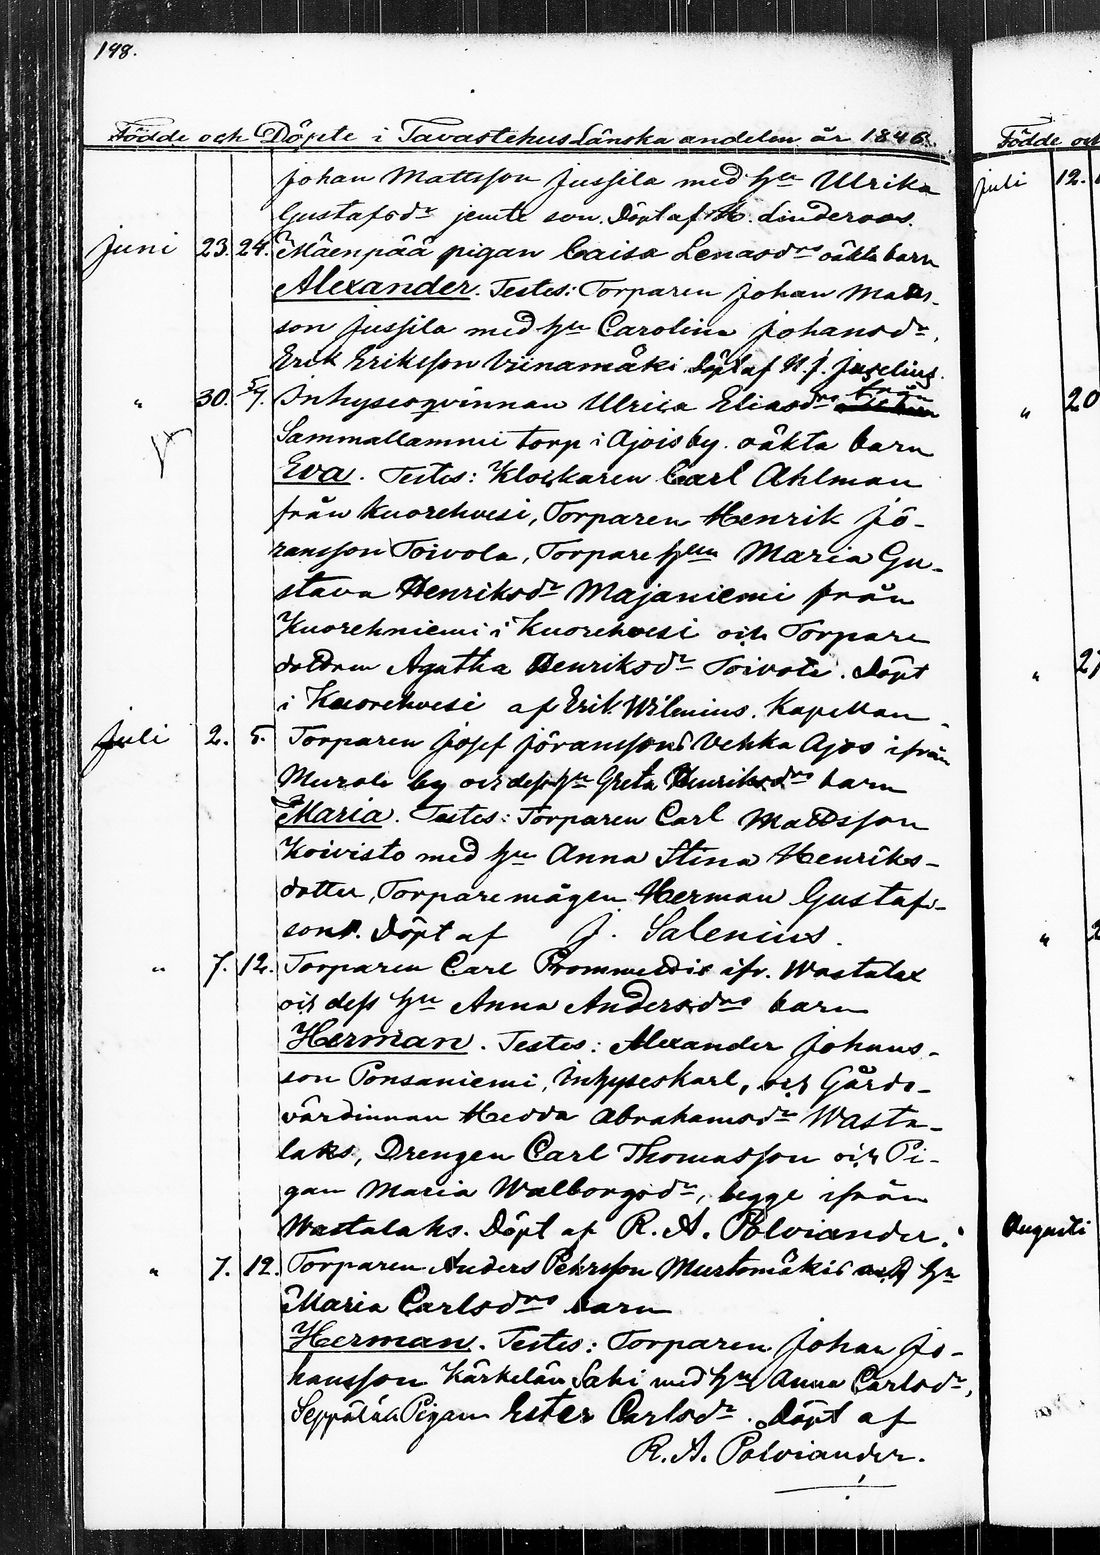 148.
Födde och Döpte i Tavastehus Länska andelen år 1846.
Johan Mattsson Jussila med hu Ulrika
Gustafsdr jemte son. Döpt af K. Linderoos.
Juni 23. 24. Mäenpää pigan Caisa Lenasdrs oäkta barn
Alexander. Testes: Torparen Johan Matts-
son Jussila med hu Carolina Johansdr,
Erik Eriksson Viinamäki. Döpt af N. J.
" 30. 5/7. Inhysesqvinnan Ulrica Eliasdrs från
Sammallammi torp i Ajois by. oäkta barn
Eva. Testes: Klockaren Carl Ahlman
från Kuorehvesi, Torparen Henrik Jö-
ransson Toivola, Torparehun Maria Gu-
stava Henriksdr Majaniemi från
Kuorehniemi i Kuorehvesi och Torpare
dottren Agatha Henriksdr Toivola. Döpt
i Kuorehvesi af Erik Wilenius. Kapellan.
Juli 2. 5. Torparen Josef Jöranssons Vehka Ajos ifrån
Murole by och dess hu Greta Henriksdrs barn
Maria. Testes: Torparen Carl Mattsson
Koivisto med hu Anna Stina Henriks-
dotter, Torparemågen Herman Gustafs-
son. Döpt af J. Salenius.
" 7. 12. Torparen Carl ifr. Wastalax
och dess hu Anna Andersdrs barn
Herman. Testes: Alexander Johans-
son Ponsaniemi, Inhyseskarl, och Gårds-
värdinnan Hedda Abrahamsdr Wasta-
laks, Drengen Carl Thomasson och Pi-
gan Maria Walborgsdr, begge ifrån
Wastalaks. Döpt af R. A. Polviander.
" 7. 12. Torparen Anders Pehrsson Murtomäkis och hu
Maria Carlsdrs barn
Herman. Testes: Torparen Johan Jo-
hansson Kärkelän Sahi med hu Anna Carlsdr,
Seppälä Pigan Ester Carlsdr. Döpt af
R. A. Polviander.
Födde och
Juli 12.
" 20
" 27
" 2
Augusti